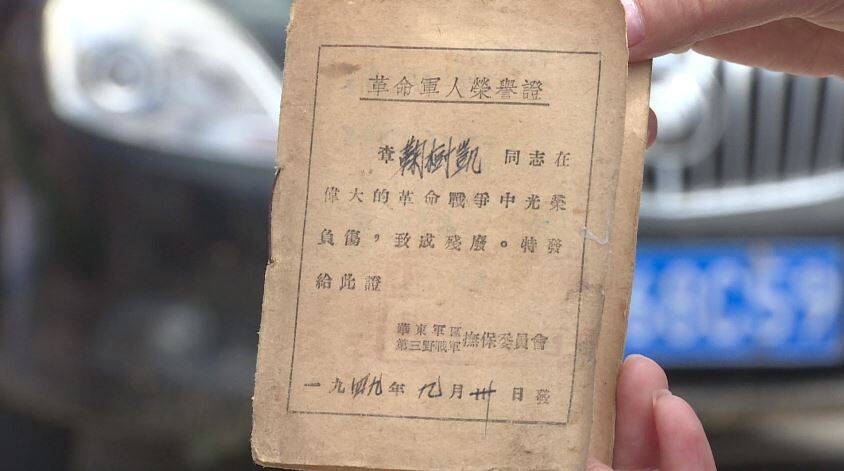 革命軍人榮譽證
查鞠樹凱同志在
偉大的革命戰爭中光榮
負傷，致成殘廢。特發
給此證
華東軍區
第三野戰軍撫保委員會
一九四九年九月卅日發